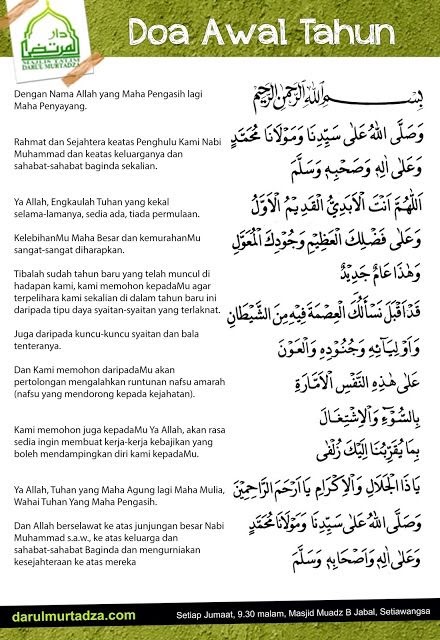 دار المرتضى
MAJLIS TA'LIM
DARUL MURTADZA
Doa Awal Tahun
Dengan Nama Allah yang Maha Pengasih lagi
Maha Penyayang.
بِسْمِ اللهِ الرَّحْمٰنِ الرَّحِيْمِ
Rahmat dan Sejahtera keatas Penghulu Kami Nabi
Muhammad dan keatas keluarganya dan
sahabat-sahabat baginda sekalian.
وَصَلَّى اللهُ عَلَى سَيِّدِنَا وَمَوْلَانَا مُحَمَّدٍ
وَعَلَى اٰلِهِ وَصَحْبِهِ وَسَلَّمَ
Ya Allah, Engkaulah Tuhan yang kekal
selama-lamanya, sedia ada, tiada permulaan.
اَللّٰهُمَّ اَنْتَ الْاَبَدِيُّ الْقَدِيْمُ الْاَوَّلُ
KelebihanMu Maha Besar dan kemurahanMu
sangat-sangat diharapkan.
وَعَلَى فَضْلِكَ الْعَظِيْمِ وَجُوْدِكَ الْمُعَوَّلِ
Tibalah sudah tahun baru yang telah muncul di
hadapan kami, kami memohon kepadaMu agar
terpelihara kami sekalian di dalam tahun baru ini
daripada tipu daya syaitan-syaitan yang terlaknat.
وَهٰذَا عَامٌ جَدِيْدٌ
قَدْ اَقْبَلَ نَسْأَلُكَ الْعِصْمَةَ فِيْهِ مِنَ الشَّيْطَانِ
Juga daripada kuncu-kuncu syaitan dan bala
tenteranya.
وَاَوْلِيَآئِهِ وَجُنُوْدِهِ وَالْعَوْنَ
Dan Kami memohon daripadaMu akan
pertolongan mengalahkan runtunan nafsu amarah
(nafsu yang mendorong kepada kejahatan).
عَلَى هٰذِهِ النَّفْسِ الْاَمَّارَةِ
بِالسُّوْءِ وَالْاِشْتِغَالَ
Kami memohon juga kepadaMu Ya Allah, akan rasa
sedia ingin membuat kerja-kerja kebajikan yang
boleh mendampingkan diri kami kepadaMu.
بِمَا يُقَرِّبُنَا اِلَيْكَ زُلْفَى
Ya Allah, Tuhan yang Maha Agung lagi Maha Mulia,
Wahai Tuhan Yang Maha Pengasih.
يَاذَا الْجَلَالِ وَالْاِكْرَامِ يَا اَرْحَمَ الرَّاحِمِيْنَ
Dan Allah berselawat ke atas junjungan besar Nabi
Muhammad s.a.w., ke atas keluarga dan
sahabat-sahabat Baginda dan mengurniakan
kesejahteraan ke atas mereka
وَصَلَّى اللهُ عَلَى سَيِّدِنَا وَمَوْلَانَا مُحَمَّدٍ
وَعَلَى اٰلِهِ وَاَصْحَابِهِ وَسَلَّمَ
darulmurtadza.com
Setiap Jumaat, 9.30 malam, Masjid Muadz B Jabal, Setiawangsa